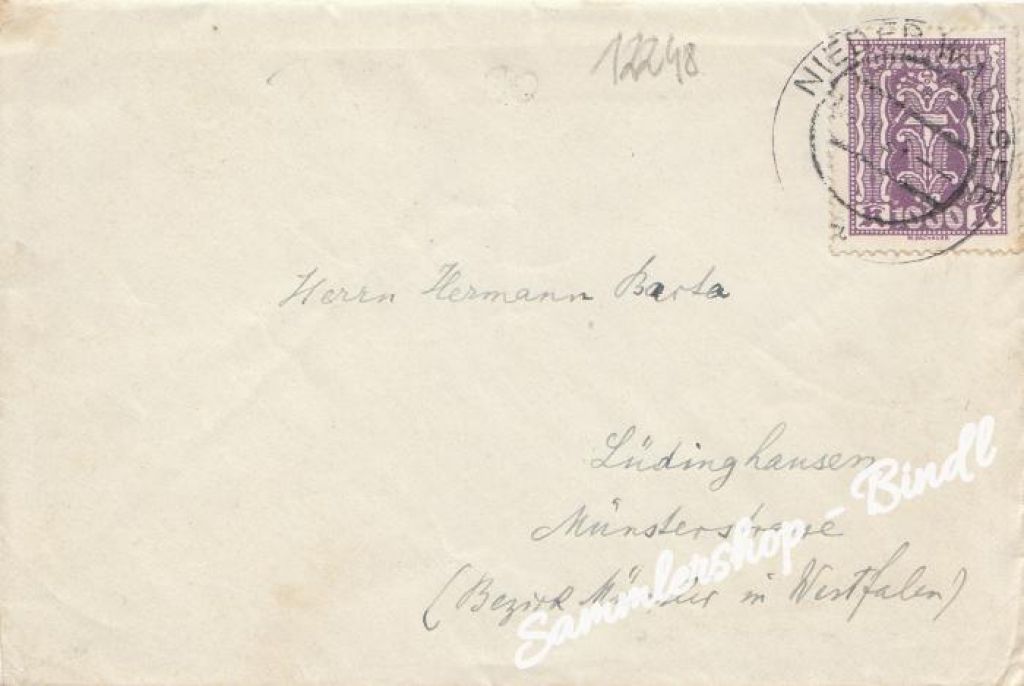 12248
NIEDER
K 1000 K
Herrn Hermann Barta
Lüdinghausen
Münsterstrasse
(Bezirk Münster in Westfalen)
Sammlershop - Bindl